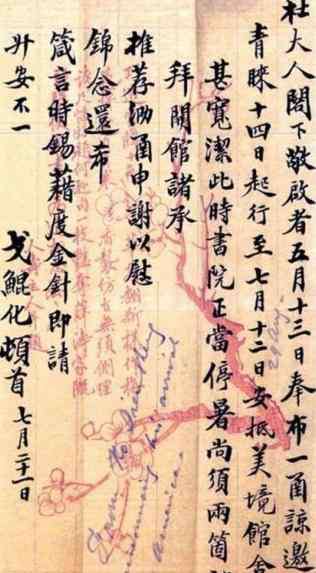 杜大人閣下敬啟者五月十三日奉布一函諒邀
青睞十四日起行至七月十二日安抵美境館舍
甚寬潔此時書院正當停暑尚須兩箇
拜開館諸承
推荐泐函申謝以慰
錦念還希
箴言時錫藉度金針即請
升安不一
戈鯤化頓首 七月二十一日
29 Aug
Ko to Drew
his arrival
America.